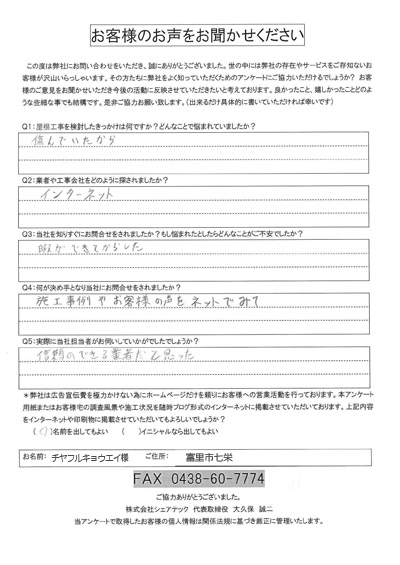 お客様のお声をお聞かせください
この度は弊社にお問い合わせをいただき、誠にありがとうございました。世の中には弊社の存在やサービスをご存知ないお
客様が沢山いらっしゃいます。その方たちに弊社をよく知っていただくためのアンケートにご協力いただけるでしょうか? お客
様のご意見をお聞かせいただき今後の活動に反映させていただきたいと考えております。良かったこと、嬉しかったことどのよ
うな些細な事でも結構です。是非ご協力お願い致します。(出来るだけ具体的に書いていただければ幸いです)
Q1:屋根工事を検討したきっかけは何ですか?どんなことで悩まれていましたか?
傷んでいたから
Q2:業者や工事会社をどのように探されましたか?
インターネット
Q3:当社を知りすぐにお問合せをされましたか?もし悩まれたとしたらどんなことがご不安でしたか?
暇ができてからした
Q4:何が決め手となり当社にお問合せをされましたか?
施工事例やお客様の声をネットでみて
Q5:実際に当社担当者がお伺いしていかがでしたでしょうか?
信頼のできる業者だと思った
*弊社は広告宣伝費を極力かけない為にホームページだけを頼りにお客様への営業活動を行っております。本アンケート
用紙またはお客様宅の調査風景や施工状況を随時ブログ形式のインターネットに掲載させていただいております。上記内容
をインターネットや印刷物に掲載させていただいてもよろしいでしょうか?
( )名前を出してもよい ( )イニシャルなら出してもよい
お名前: チヤフルキョウエイ様 ご住所: 富里市七栄
FAX 0438-60-7774
ご協力ありがとうございました。
株式会社シェアテック 代表取締役 大久保 誠二
当アンケートで取得したお客様の個人情報は関係法規に基づき厳正に管理いたします。